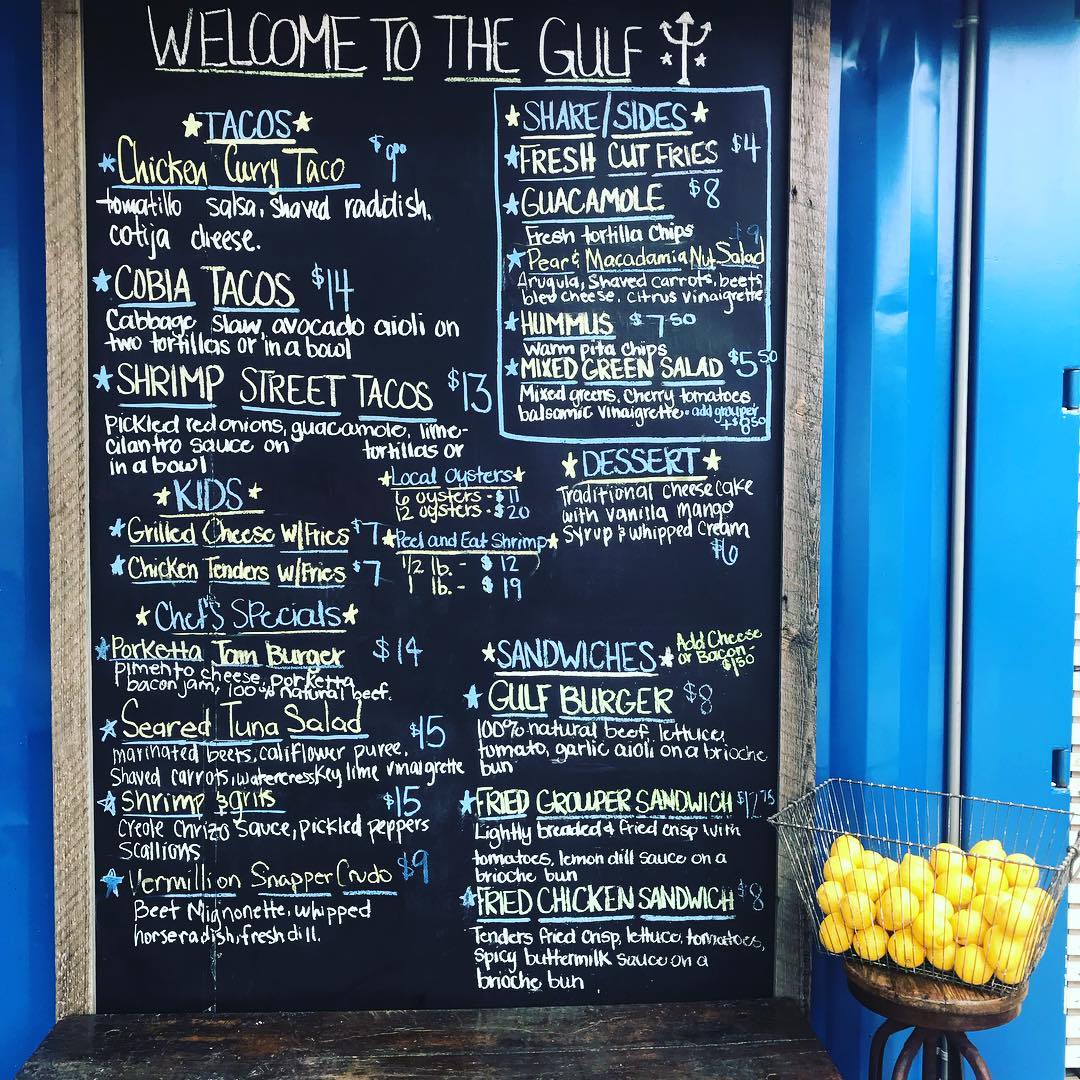 WELCOME TO THE GULF
TACOS
Chicken Curry Taco $9.00
tomatillo salsa, shaved raddish,
cotija cheese.
COBIA TACOS $14
Cabbage slaw, avocado aioli on
two tortillas or in a bowl
SHRIMP STREET TACOS $13
Pickled red onions, guacamole, lime-
cilantro sauce on tortillas or
in a bowl
KIDS
Grilled Cheese w/Fries $7
Chicken Tenders w/Fries $7
Local Oysters
6 oysters - $11
12 oysters - $20
Peel and Eat Shrimp
1/2 lb. - $12
1 lb. - $19
Chef's Specials
Porketta Jam Burger $14
Pimento cheese, porketta
bacon jam, 100% natural beef.
Seared Tuna Salad $15
marinated beets, califlower puree,
Shaved carrots, watercress Key lime vinaigrette
Shrimp & grits $15
Creole Chrizo Sauce, pickled peppers
Scallions
Vermillion Snapper Crudo $9
Beet Mignonette, whipped
horseradish, fresh dill.
SHARE/SIDES
FRESH CUT FRIES $4
GUACAMOLE $8
Fresh tortilla Chips
Pear & Macadamia Nut Salad $9
Arugula, Shaved carrots, beets
bleu cheese, citrus vinaigrette
HUMMUS $7.50
Warm pita Chips
MIXED GREEN SALAD $5.50
Mixed greens, Cherry tomatoes
balsamic vinaigrette. add grouper
+$8.50
DESSERT
Traditional cheesecake
with vanilla mango
Syrup & whipped cream
$6
SANDWICHES
Add Cheese
or Bacon -
$1.50
GULF BURGER $8
100% natural beef, lettuce,
tomato, garlic aioli on a brioche
bun
FRIED GROUPER SANDWICH $12.75
Lightly breaded & fried crisp with
tomatoes, lemon dill sauce on a
brioche bun
FRIED CHICKEN SANDWICH $8
Tenders fried crisp, lettuce, tomatoes,
spicy buttermilk sauce on a
brioche bun